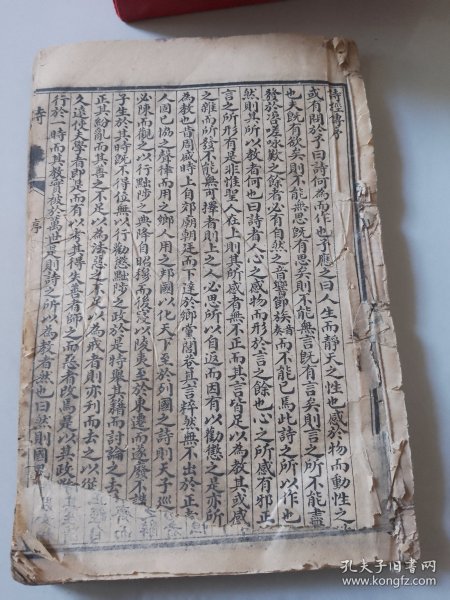 詩經傳序
或有問於予曰詩何為而作也予應之曰人生而靜天之性也感於物而動性之
也夫既有欲矣則不能無思既有思矣則不能無言既有言矣則言之所不能盡
發於咨嗟咏歎之餘者必有自然之音響節族音奏而不能已焉此詩之所以作也
然則其所以教者何也曰詩者人心之感物而形於言之餘也心之所感有邪正
言之所形有是非惟聖人在上則其所感者無不正而其言皆足以為教其或感
之雜而所發不能無可擇者則上之人必思所以自返而因有以勸懲之是亦所
為教也昔周盛時上自郊廟朝廷而下達於鄉黨閭巷其言粹然無不出於正
人固已協之聲律而用之鄉人用之邦國以化天下至於列國之詩則天子巡
必陳而觀之以行黜陟之典降自昭穆而後寖以陵夷至於東遷而遂廢不講
子生於其時既不得位無以行勸懲黜陟之政於是特舉其籍而討論之去
正其紛亂而其善之不足以為法惡之不足以為戒者則亦刊而去之以從
久遠使夫學者即是而有以考其得失善者師之而惡者改焉是以其政
行於一時而其教實被於萬世是則詩之所以為教者然也曰然則國
詩
序
孔夫子旧书网
www.kongfz.com